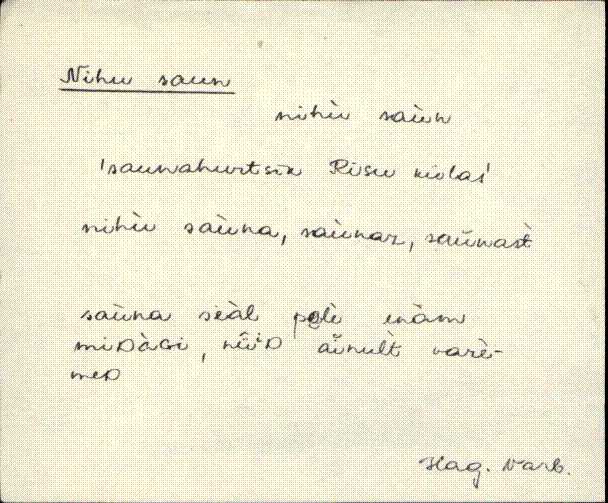 Nihu saun
nihù saùn
'saunahurtsik Risu külas'
nihù saùna, saùnaz, saùnast
saùna sèàl polè ènàm
miDàGi, nǖìD aìnult varè-
meD
Hag. Varb.